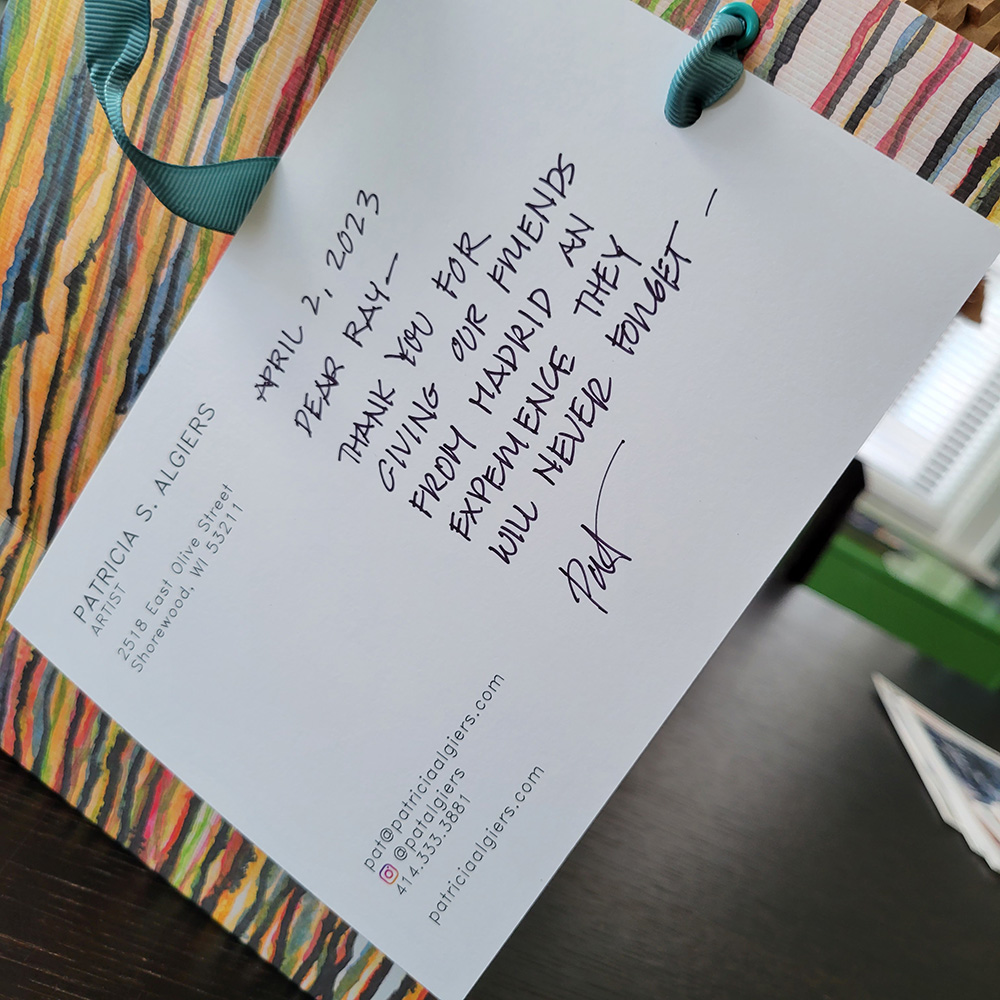 APRIL 2, 2023
DEAR RAY—
THANK YOU FOR
GIVING OUR FRIENDS
FROM MADRID AN
EXPERIENCE THEY
WILL NEVER FORGET —
Pat
PATRICIA S. ALGIERS
ARTIST
2518 East Olive Street
Shorewood, WI 53211
pat@patriciaalgiers.com
@patalgiers
414.333.3881
patriciaalgiers.com